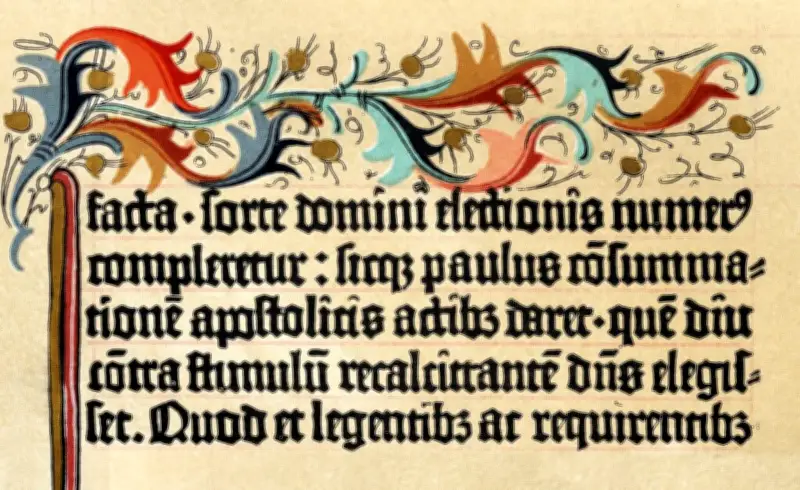 facta · sorte domini electionis numerꝰ
compleretur : sicqꝫ paulus cōsumma⸗
tionē apostolicis actibꝫ daret · quē diu
cōtra stimulū recalcitrantē dn̄s elegis⸗
set. Quod et legentibꝫ ac requirentibꝫ